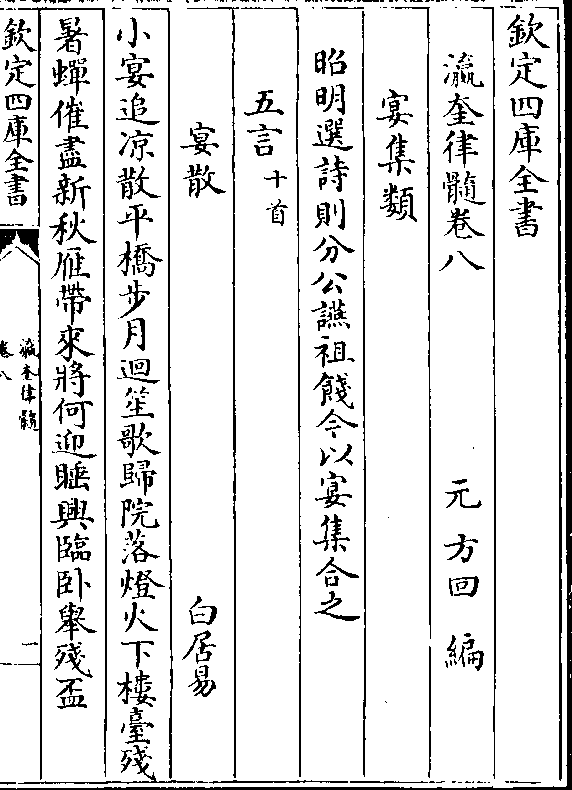 欽定四庫全書
瀛奎律髓卷八　元方回編
宴集類
昭明選詩則分公讌祖餞今以宴集合之
五言十首
宴散　白居易
小宴追凉散平橋步月迴笙歌歸院落燈火下樓臺殘
暑蟬催盡新秋雁帶來將何迎睡興臨卧舉殘盃
欽定四庫全書
瀛奎律髓
卷八
二